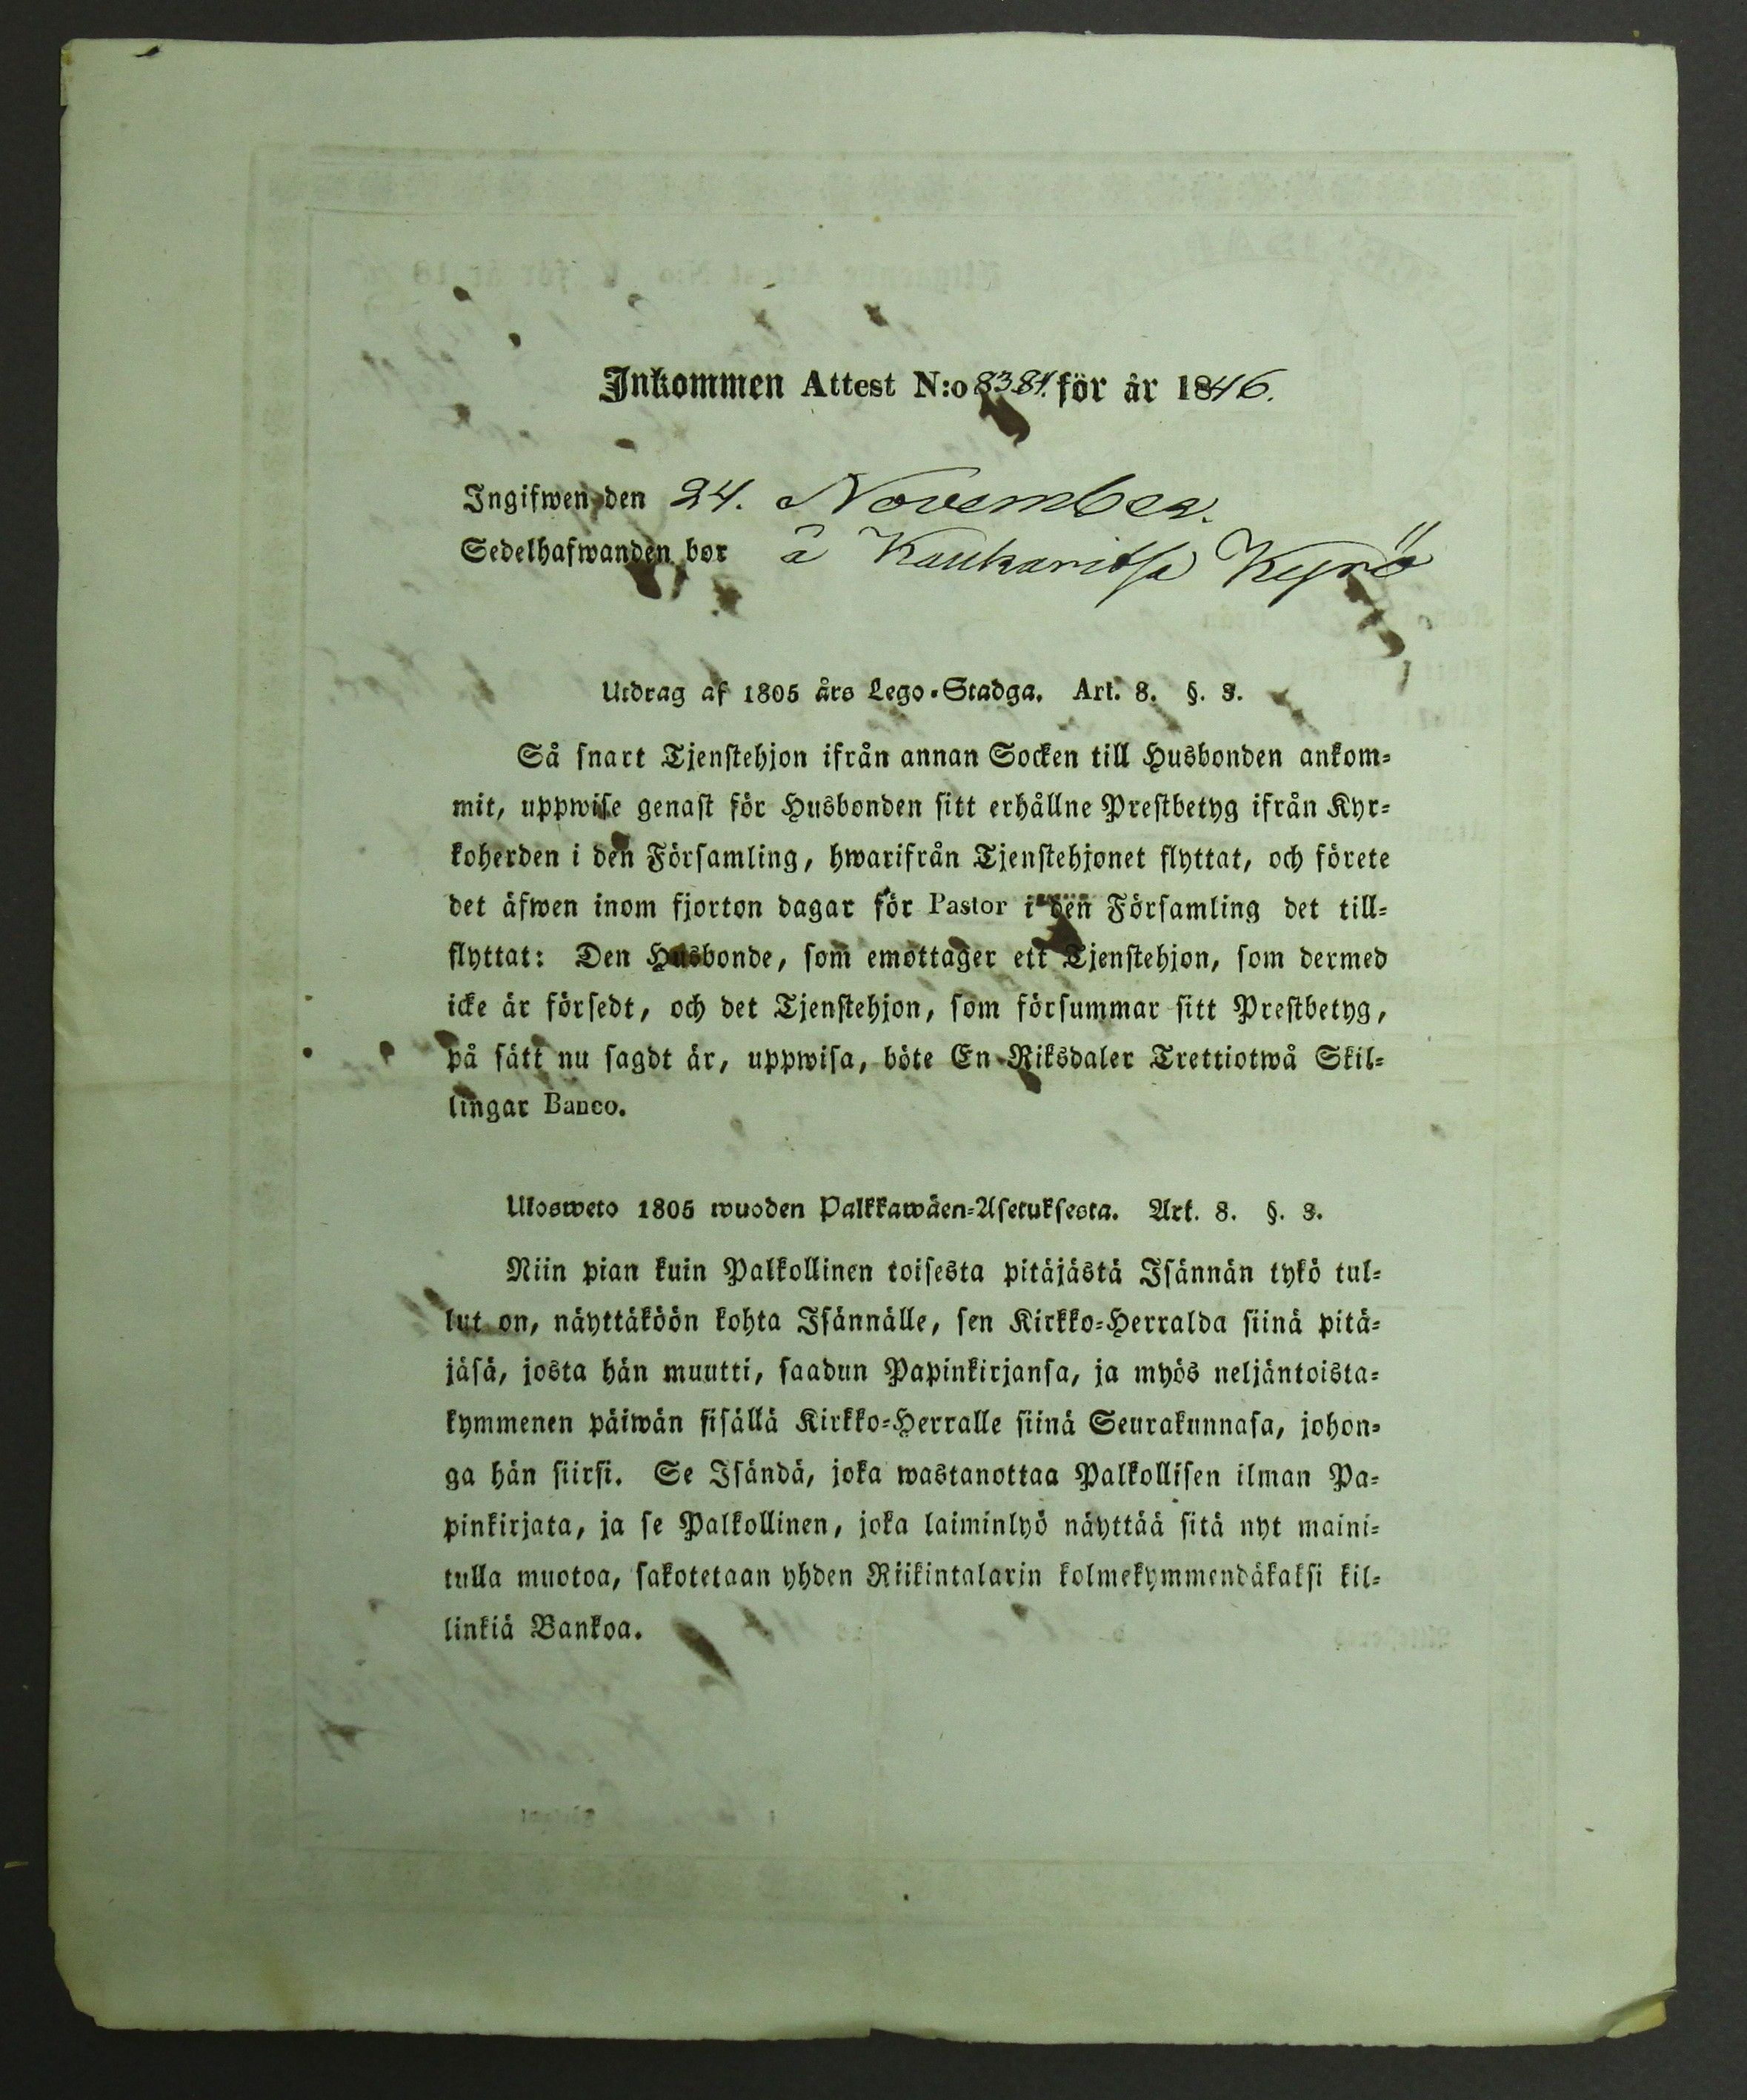 Inkommen Attest N:o 8384. för år 1846.
Ingifwen den 24. November.
Sedelhafwanden bor å Kaukaritsa Kyrö
Utdrag af 1805 års Lego-Stadga. Art. 8. §. 3.
Så snart Tjenstehjon ifrån annan Socken till Husbonden ankom-
mit, uppwise genast för Husbonden sitt erhållne Prestbetyg ifrån Kyr-
koherden i den Församling, hwarifrån Tjenstehjonet flyttat, och förete
det äfwen inom fjorton dagar för Pastor i den Församling det till-
flyttat: Den Husbonde, som emottager ett Tjenstehjon, som dermed
icke är försedt, och det Tjenstehjon, som försummar sitt Prestbetyg,
på sätt nu sagdt är, uppwisa, böte En Riksdaler Trettiotwå Skil-
lingar Banco.
Ulosweto 1805 wuoden Palkkawäen-Asetuksesta. Art. 8. §. 3.
Niin pian kuin Palkollinen toisesta pitäjästä Isännän tykö tul-
lut on, näyttäköön kohta Isännälle, sen Kirkko-Herralda siinä pitä-
jäsä, josta hän muutti, saadun Papinkirjansa, ja myös neljäntoista-
kymmenen päiwän sisällä Kirkko-Herralle siinä Seurakunnasa, johon-
ga hän siirsi. Se Isändä, joka wastanottaa Palkollisen ilman Pa-
pinkirjata, ja se Palkollinen, joka laiminlyö näyttää sitä nyt maini-
tulla muotoa, sakotetaan yhden Riikintalarin kolmekymmendäkaksi kil-
linkiä Bankoa.